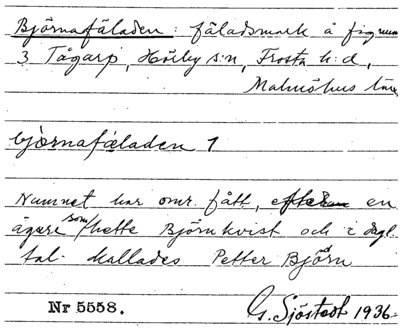 Björnafäladen: fäladsmark å fig num
3 Tågarp, Hörby s:n, Frosta h:d,
Malmöhus län.
björnafäladen 1
Namnet har omr. fått, efter en
ägare som hette Björnkvist och i dagl.
tal kallades Petter Björn
Nr 5558.
G. Sjöstedt 1936.